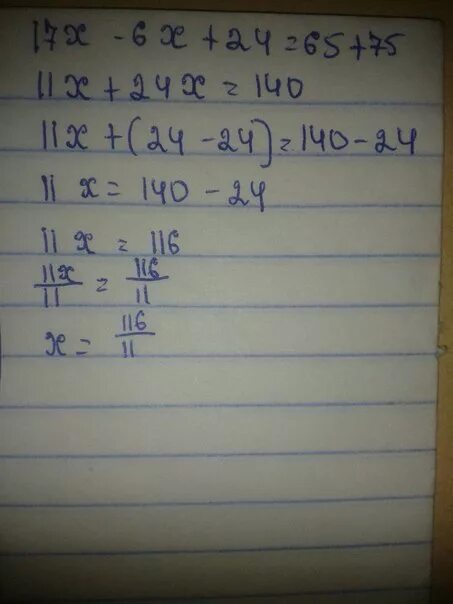 17x - 6x + 24 = 65 + 75
11x + 24x = 140
11x + (24 - 24) = 140 - 24
11 x = 140 - 24
11 x = 116
11x/11 = 116/11
x = 116/11